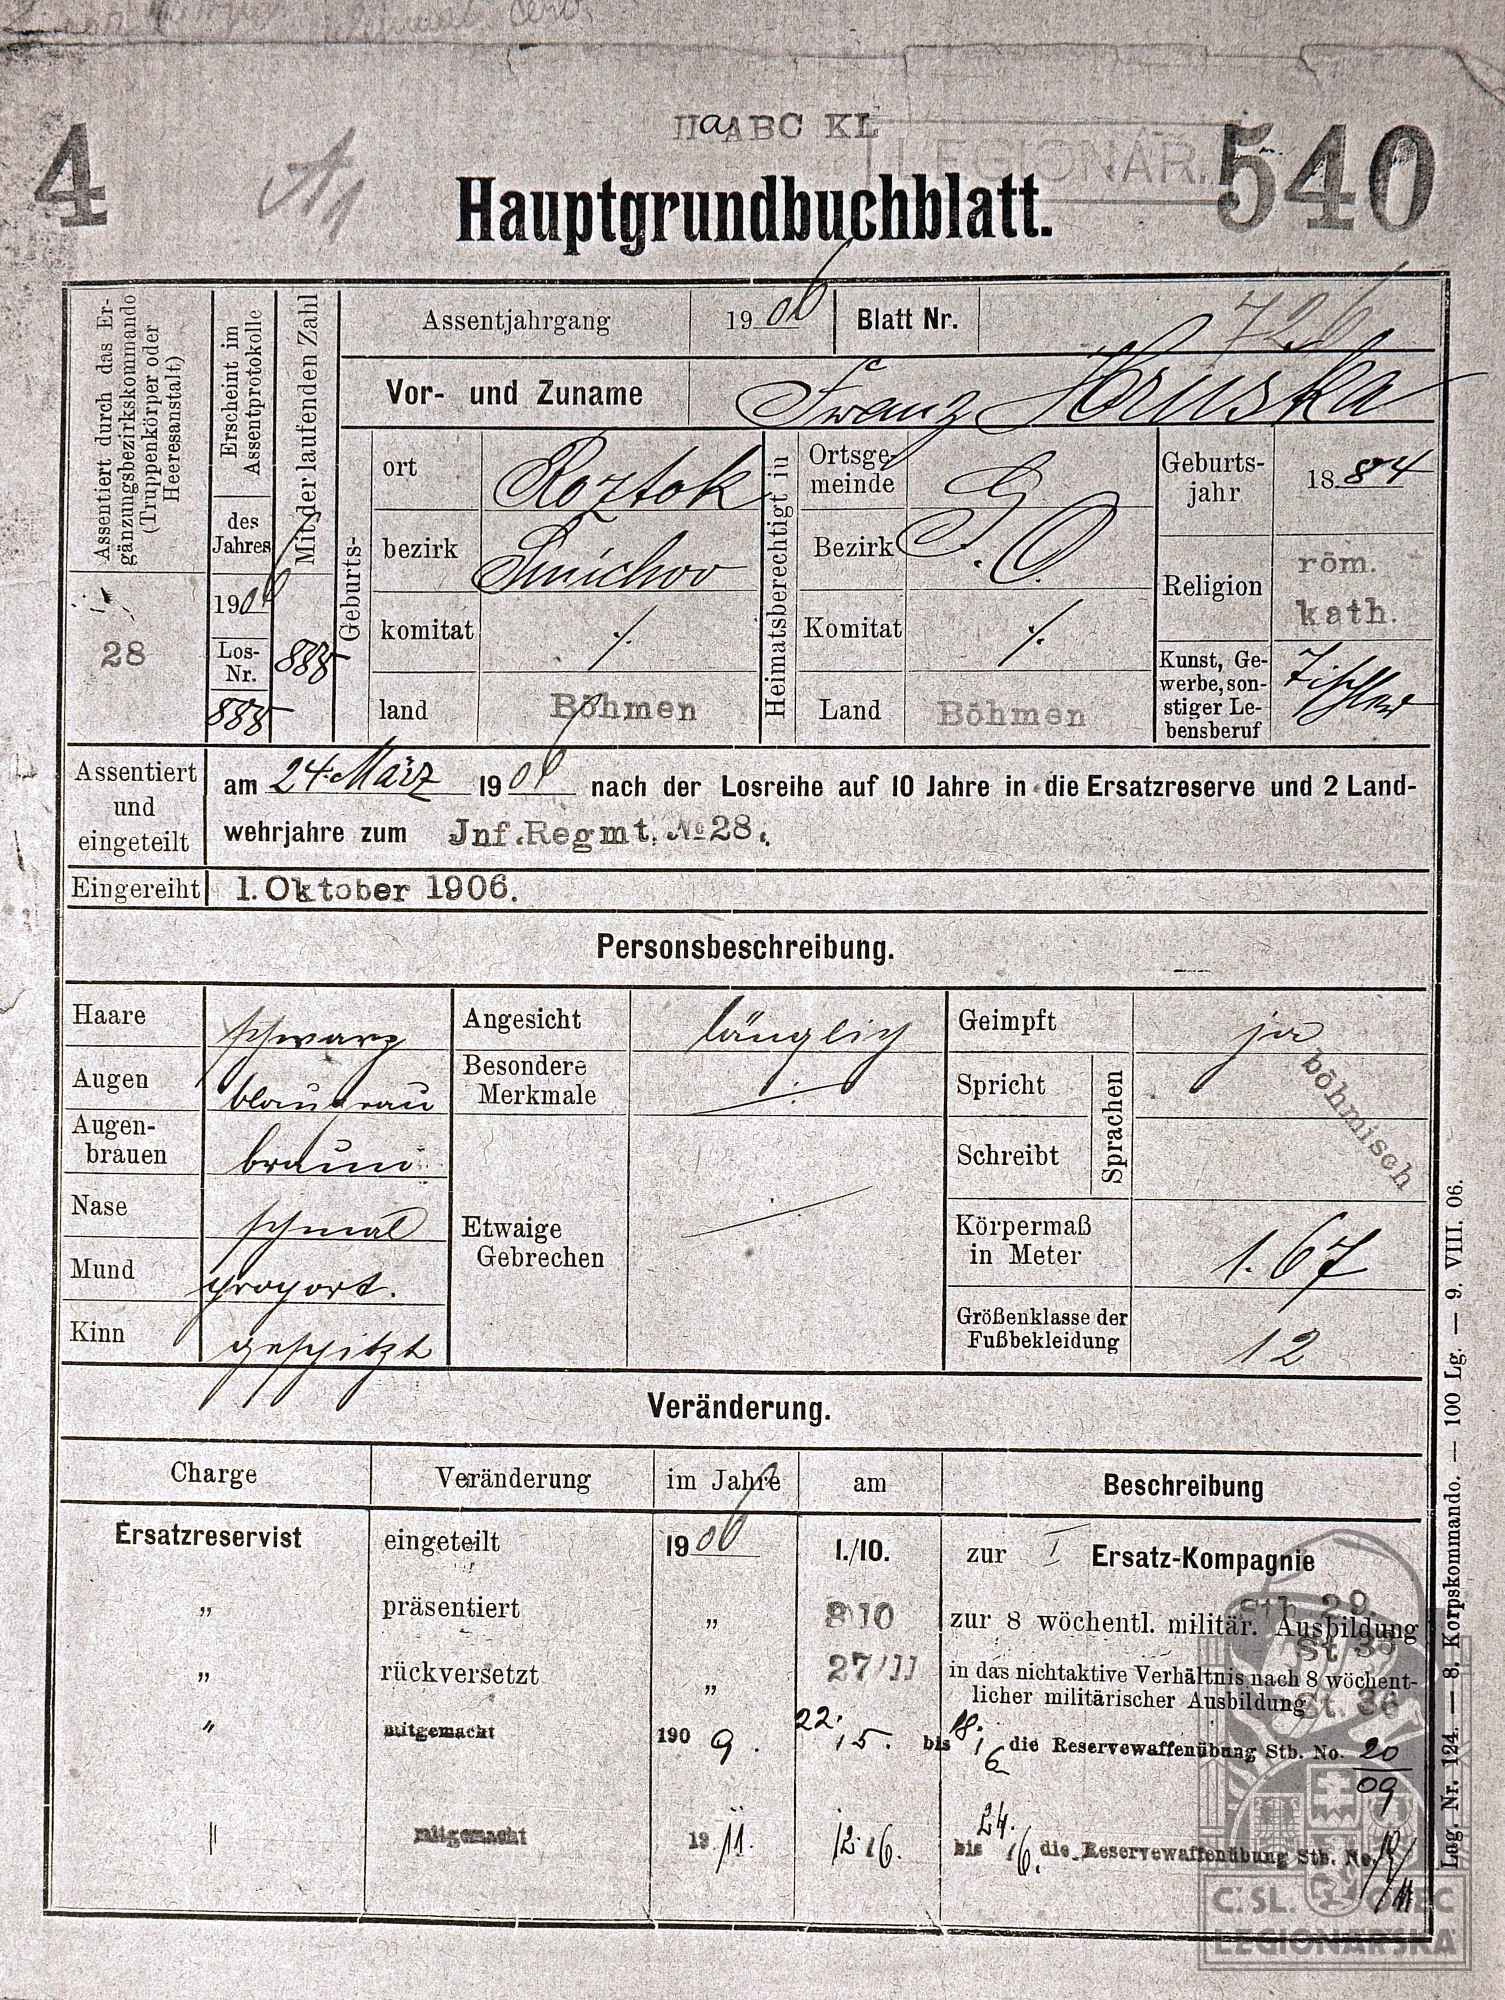 IIa ABC KL
LEGIONÁR.
4
A1
540
Hauptgrundbuchblatt.
Assentiert durch das Er-
gänzungsbezirkskommando
(Truppenkörper oder
Heeresanstalt)
28
Erscheint im
Assentprotokolle
des
Jahres
1906
Los-
Nr.
888
Mit der laufenden Zahl
888
Assentjahrgang 1906 Blatt Nr. 726
Vor- und Zuname Franz Hruska
Geburts-
ort Roztok
bezirk Smichov
komitat ./.
land Böhmen
Heimatsberechtigt in
Ortsge-
meinde G.
Bezirk G. O.
Komitat ./.
Land Böhmen
Geburts-
jahr 1884
Religion röm.
kath.
Kunst, Ge-
werbe, son-
stiger Le-
bensberuf
Tischler
Assentiert
und
eingeteilt
am 24. März 1906 nach der Losreihe auf 10 Jahre in die Ersatzreserve und 2 Land-
wehrjahre zum Jnf.Regmt. No 28.
Eingereiht 1. Oktober 1906.
Personsbeschreibung.
Haare schwarz
Augen blaugrau
Augen-
brauen braun
Nase schmal
Mund proport.
Kinn gespitzt
Angesicht länglich
Besondere
Merkmale ./.
Etwaige
Gebrechen
Geimpft ja
Spricht
Schreibt
Sprachen
böhmisch
Körpermaß
in Meter 1.67
Größenklasse der
Fußbekleidung 12
Veränderung.
Charge Veränderung im Jahre am Beschreibung
Ersatzreservist eingeteilt 1906 1./10. zur I Ersatz-Kompagnie
Stb 29.
" präsentiert " 8 10 zur 8 wöchentl. militär. Ausbildung
St 35
" rückversetzt " 27/11 in das nichtaktive Verhältnis nach 8 wöchent-
licher militärischer Ausbildung St. 36
" mitgemacht 1909. 22./5. bis 18./6 die Reservewaffenübung Stb. No. 20/09
" mitgemacht 1911. 12./6. bis 24./6. die Reservewaffenübung Stb. No.
Log. Nr. 124. — 8. Korpskommando. — 100 Lg. — 9. VIII. 06.
Č.SL. OBEC
LEGIONÁŘSKÁ